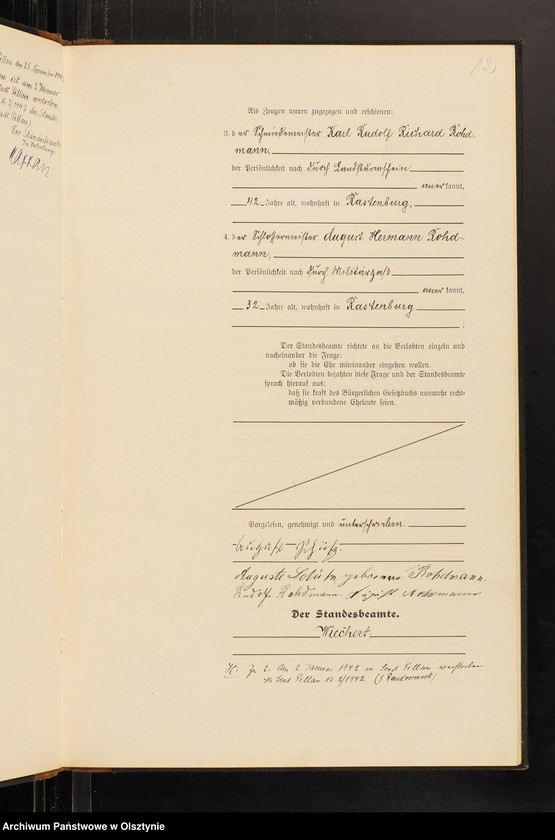 12
Als Zeugen waren zugezogen und erschienen:
3. der Schmiedemeister Karl Rudolf Richard Rohd-
mann,
der Persönlichkeit nach durch Landsturmschein
anerkannt,
42 Jahre alt, wohnhaft in Rastenburg,
4. der Schlossermeister August Hermann Rohd-
mann,
der Persönlichkeit nach durch Militärpaß
anerkannt,
32 Jahre alt, wohnhaft in Rastenburg
;
Der Standesbeamte richtete an die Verlobten einzeln und
nacheinander die Frage:
ob sie die Ehe miteinander eingehen wollen.
Die Verlobten bejahten diese Frage und der Standesbeamte
sprach hierauf aus:
daß sie kraft des Bürgerlichen Gesetzbuchs nunmehr recht-
mäßig verbundene Eheleute seien.
Vorgelesen, genehmigt und unterschrieben.
August
Auguste geborene Rohdmann.
Rudolf Rohdmann. August Rohdmann
Der Standesbeamte.
Wiechert
H: Zu 2. Am 2 Januar 1942 in Seest. Pillau verstorben
St. Seest. Pillau No 2/1942.
Archiwum Państwowe w Olsztynie